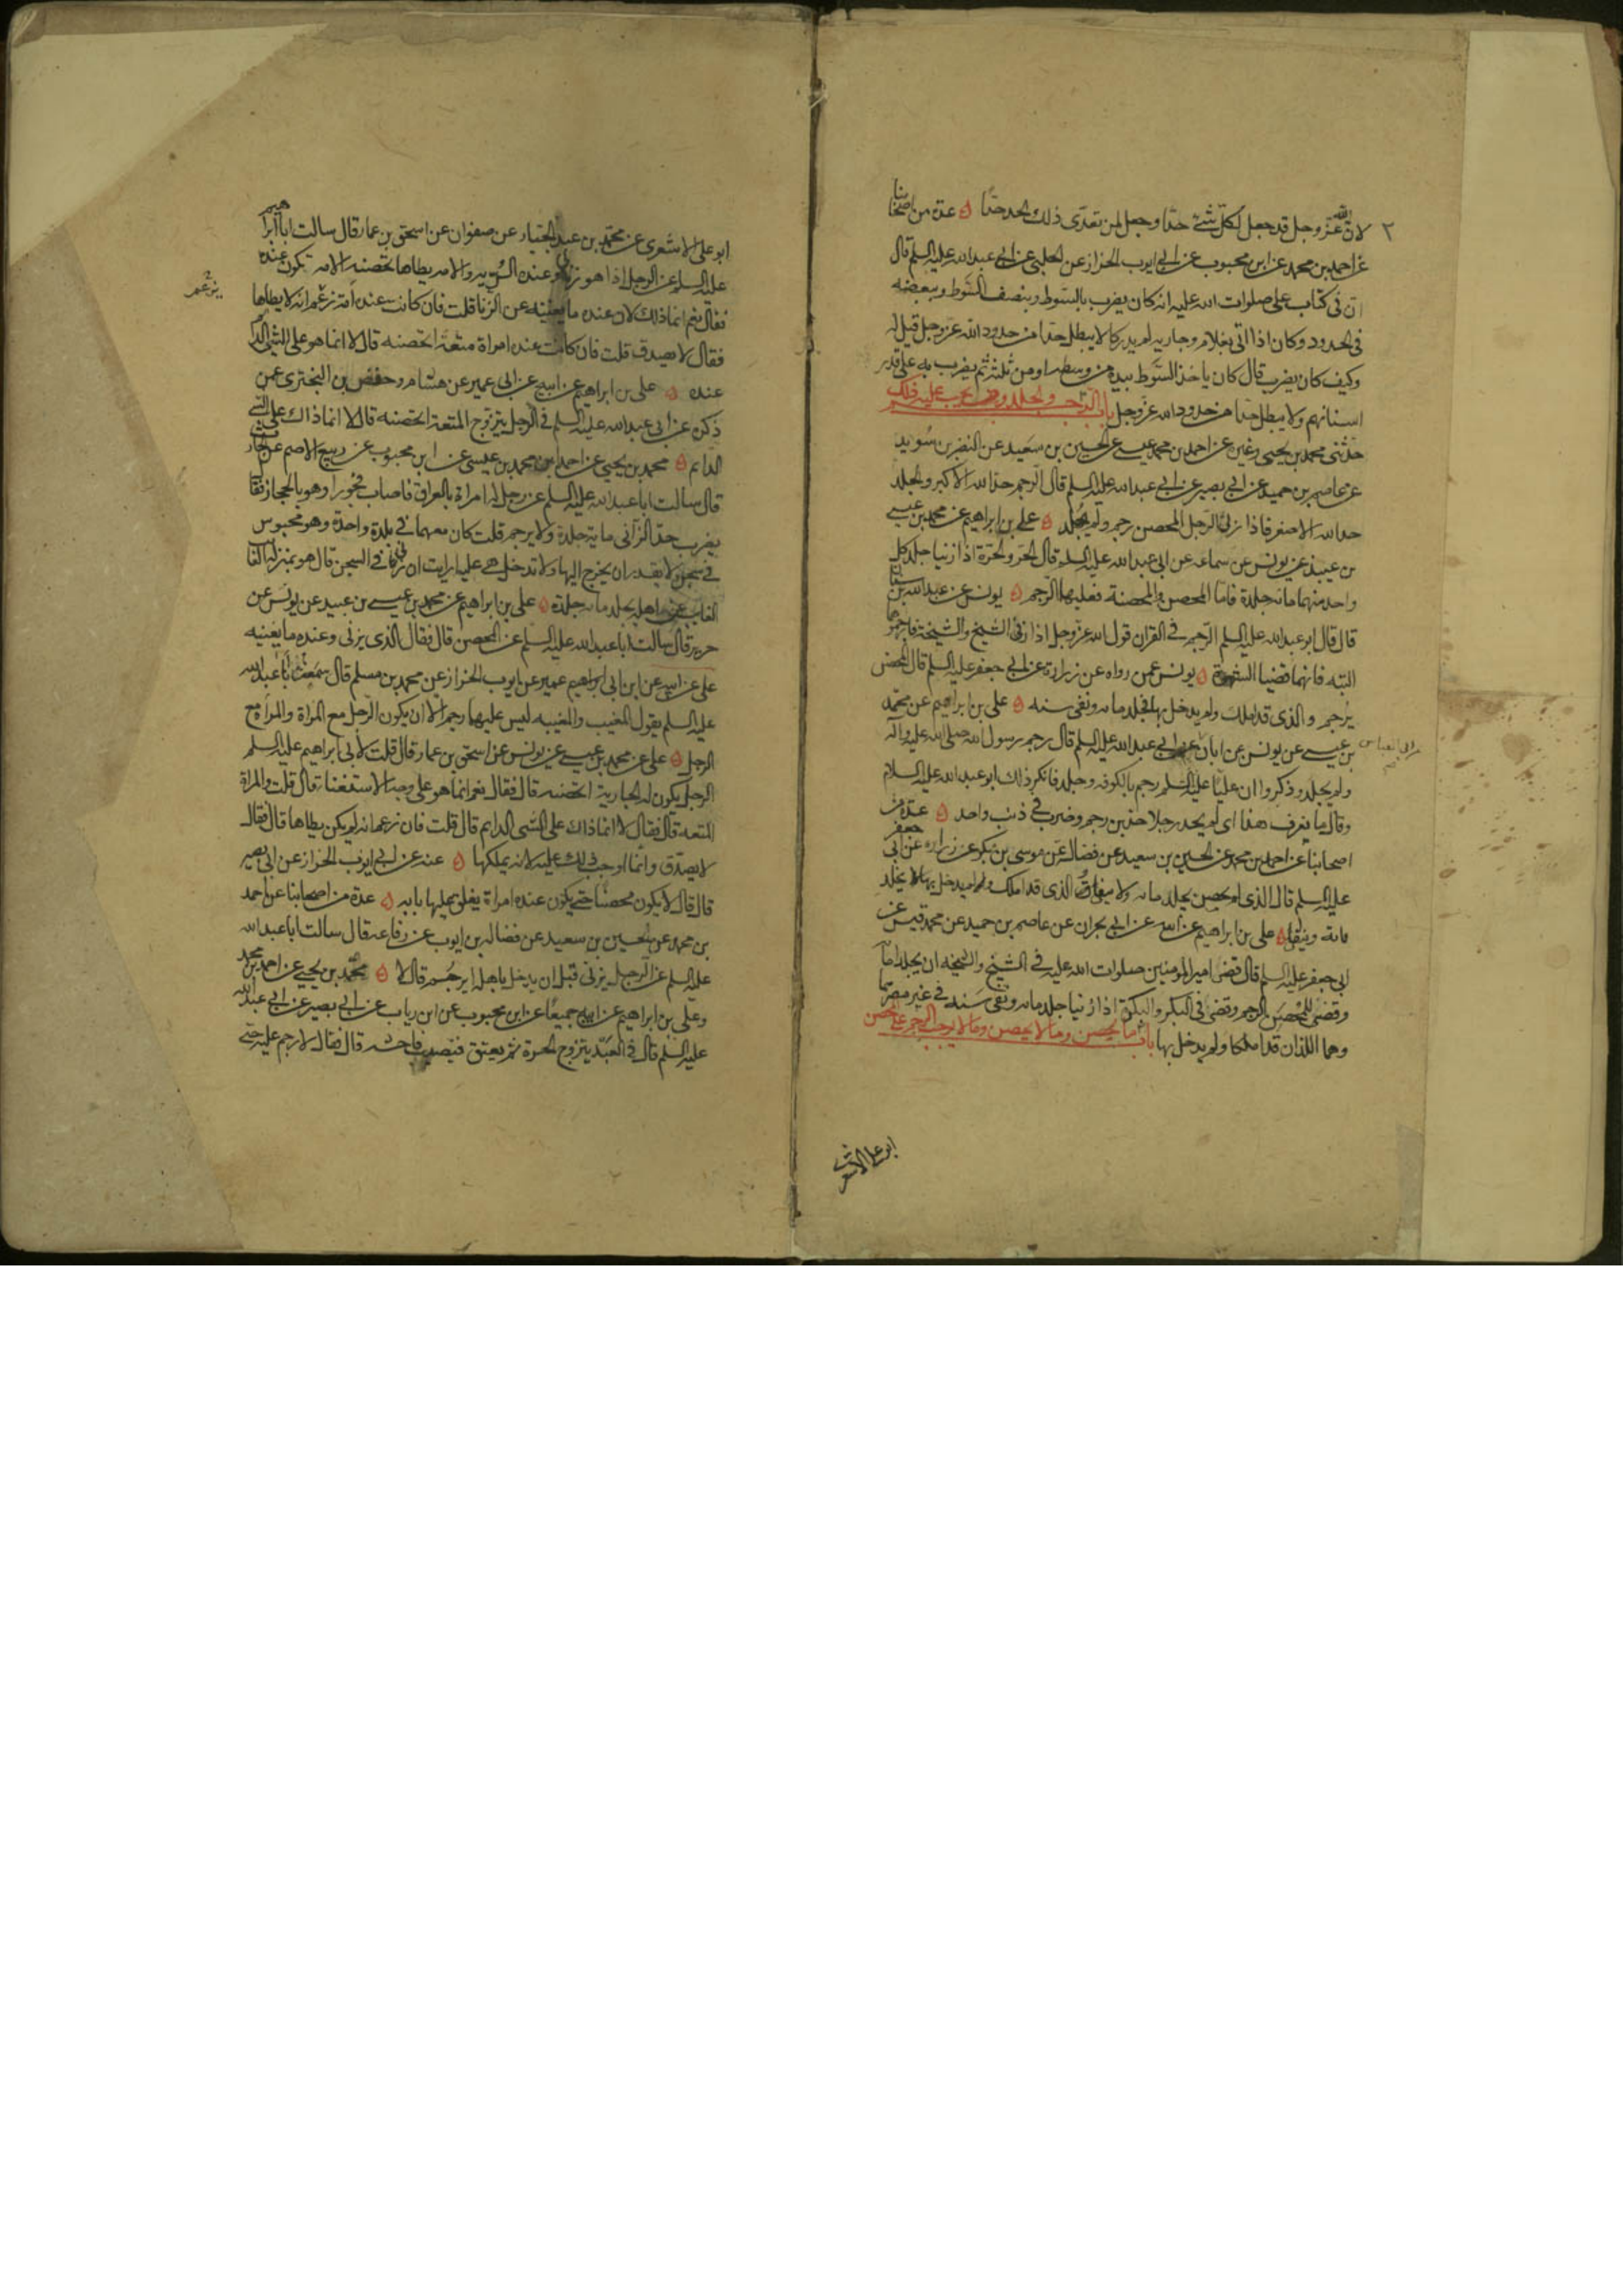 ٢ لان الله عز وجل قد جعل لكل شئ حدا وجعل لمن تعدى ذلك الحد حدا ٥ عدة من اصحابنا
عن احمد بن محمد عن ابن محبوب عن ابي ايوب الخزاز عن الحلبي عن ابي عبد الله عليه السلم قال
ان في كتاب علي صلوات الله عليه انه كان يضرب بالسوط وبنصف السوط وببعضه
في الحدود وكان اذا اتى بغلام وجارية لم يدركا لا يبطل حدا من حدود الله عز وجل قيل له
وكيف كان يضرب قال كان ياخذ السوط بيده من وسطه او من ثلثه ثم يضرب به على قدر
اسنانهم ولا يبطل حدا من حدود الله عز وجل باب الرجم والجلد ومن يجب عليه ذلك
حدثني محمد بن يحيى وغيره عن احمد بن محمد بن عيسى عن الحسين بن سعيد عن النضر بن سويد
عن عاصم بن حميد عن ابي بصير عن ابي عبد الله عليه السلم قال الرجم حد الله الاكبر والجلد
حد الله الاصغر فاذا زنى الرجل المحصن رجم ولم يجلد ٥ علي بن ابراهيم عن محمد بن عيسى
بن عبيد عن يونس عن سماعه عن ابي عبد الله عليه السلم قال الحر والحرة اذا زنيا جلد كل
واحد منهما مائة جلدة فاما المحصن والمحصنة فعليهما الرجم ٥ يونس عن عبد الله بن سنان
قال قال ابو عبد الله عليه السلم الرجم في القران قول الله عز وجل اذا زنى الشيخ والشيخة فارجموهما
البته فانهما قضيا الشهوة ٥ يونس عمن رواه عن زرارة عن ابي جعفر عليه السلم قال المحصن
يرجم والذي قد املك ولم يدخل بها فجلد مائه ونفي سنه ٥ علي بن ابراهيم عن محمد
بن عيسى عن يونس عن ابان عن ابي عبد الله عليه السلم قال رجم رسول الله صلى الله عليه واله
ولم يجلد وذكروا ان عليا عليه السلم رجم بالكوفه وجلد فانكر ذلك ابو عبد الله عليه السلام
وقال ما نعرف هذا اي لم يحد رجلا حدين رجم وضرب في ذنب واحد ٥ عدة من
اصحابنا عن احمد بن محمد عن الحسين بن سعيد عن فضاله عن موسى بن بكر عن زراره عن ابي جعفر
عليه السلم قال الذي لم يحصن يجلد مائه ولا ينفى والذي قد املك ولم يدخل بها يجلد
مائة وينفى ٥ علي بن ابراهيم عن ابيه عن ابن ابي نجران عن عاصم بن حميد عن محمد بن قيس عن
ابي جعفر عليه السلم قال قضى امير المومنين صلوات الله عليه في الشيخ والشيخه ان يجلدا مائة
وقضى للمحصن الرجم وقضى في البكر والبكرة اذا زنيا جلد مائه ونفي سنه في غير مصرهما
وهما اللذان قد املكا ولم يدخل بها باب ما يحصن وما لا يحصن وما لا يوجب الرجم على المحصن
ابو علي الاشعري
ابو علي الاشعري عن محمد بن عبد الجبار عن صفوان عن اسحق بن عمار قال سالت ابا ابراهيم
عليه السلم عن الرجل اذا هو زنى وعنده السرية والامه يطاها تحصنه الامه تكون عنده
فقال نعم انما ذلك لان عنده ما يغنيه عن الزنا قلت فان كانت عنده امة زعم انه لا يطاها
فقال لا يصدق قلت فان كانت عنده امراة متعة اتحصنه قال لا انما هو على الشئ الدائم
عنده ٥ علي بن ابراهيم عن ابيه عن ابي عمير عن هشام وحفص بن البختري عمن
ذكره عن ابي عبد الله عليه السلم في الرجل يتزوج المتعة اتحصنه قال لا انما ذاك على الشئ
الدائم ٥ محمد بن يحيى عن احمد بن محمد بن عيسى عن ابن محبوب عن ربيع الاصم عن الحارث
قال سالت ابا عبد الله عليه السلم عن رجل له امراة بالعراق فاصاب فجورا وهو بالحجاز فقال
يضرب حد الزاني مايه جلدة ولا يرجم قلت كان معهما في بلدة واحدة وهو محبوس
في سجن ولا يقدر ان يخرج اليها ولا تدخل هي عليه ارايت ان زنى في السجن قال هو بمنزلة
الغايب عن اهله يجلد مائه جلدة ٥ علي بن ابراهيم عن محمد بن عيسى بن عبيد عن يونس عن
حريز قال سالت ابا عبد الله عليه السلم عن المحصن قال فقال الذي يزني وعنده ما يغنيه
علي عن ابيه عن ابن ابي عمير عن ابي ايوب الخزاز عن محمد بن مسلم قال سمعت ابا عبد الله
عليه السلم يقول المغيب والمغيبه ليس عليهما رجم الا ان يكون الرجل مع المراة والمراة مع
الرجل ٥ علي عن محمد بن عيسى عن يونس عن اسحق بن عمار قال قلت لابي ابراهيم عليه السلم
الرجل يكون له الجارية اتحصنه قال فقال نعم انما هو على وجه الاستغناء قال قلت والمراة
المتعه قال فقال لا انما ذاك على الشئ الدايم قال قلت فان زعم انه لم يكن يطاها قال فقال
لا يصدق وانما اوجب ذلك عليه لانه يملكها ٥ عنه عن ابي ايوب الخزاز عن ابي بصير
قال قال لا يكون محصنا حتى يكون عنده امراة يغلق عليها بابه ٥ عدة من اصحابنا عن احمد
بن محمد عن الحسين بن سعيد عن فضاله بن ايوب عن رفاعه قال سالت ابا عبد الله
عليه السلم عن الرجل يزني قبل ان يدخل باهله ايرجم قال لا ٥ محمد بن يحيى عن احمد بن محمد
وعلي بن ابراهيم عن ابيه جميعا عن ابن محبوب عن ابن رياب عن ابي بصير عن ابي عبد الله
عليه السلم قال في العبد يتزوج الحرة ثم يعتق فيصيب فاحشه قال فقال لا رجم عليه حتى